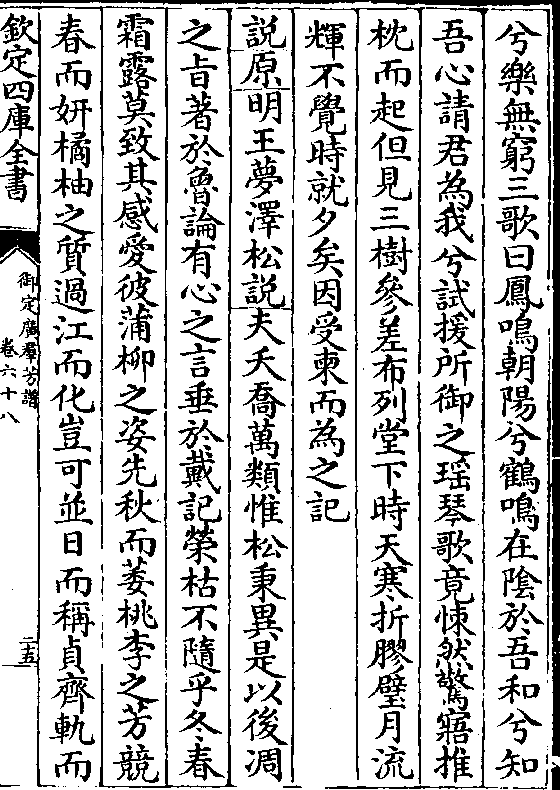 兮樂無窮三歌曰鳳鳴朝陽兮鶴鳴在陰於吾和兮知
吾心請君為我兮試援所御之瑶琴歌竟悚然驚寤推
枕而起但見三樹參差布列堂下時天寒折膠璧月流
輝不覺時就夕矣因受柬而為之記
說原明王夢澤松説夫夭喬萬類惟松秉異是以後凋
之旨著於魯論有心之言垂於戴記榮枯不隨乎冬春
霜露莫致其感愛彼蒲柳之姿先秋而萎桃李之芳競
春而妍橘柚之質過江而化豈可並日而稱貞齊軌而
欽定四庫全書
御定廣羣芳譜
卷六十八
二十五